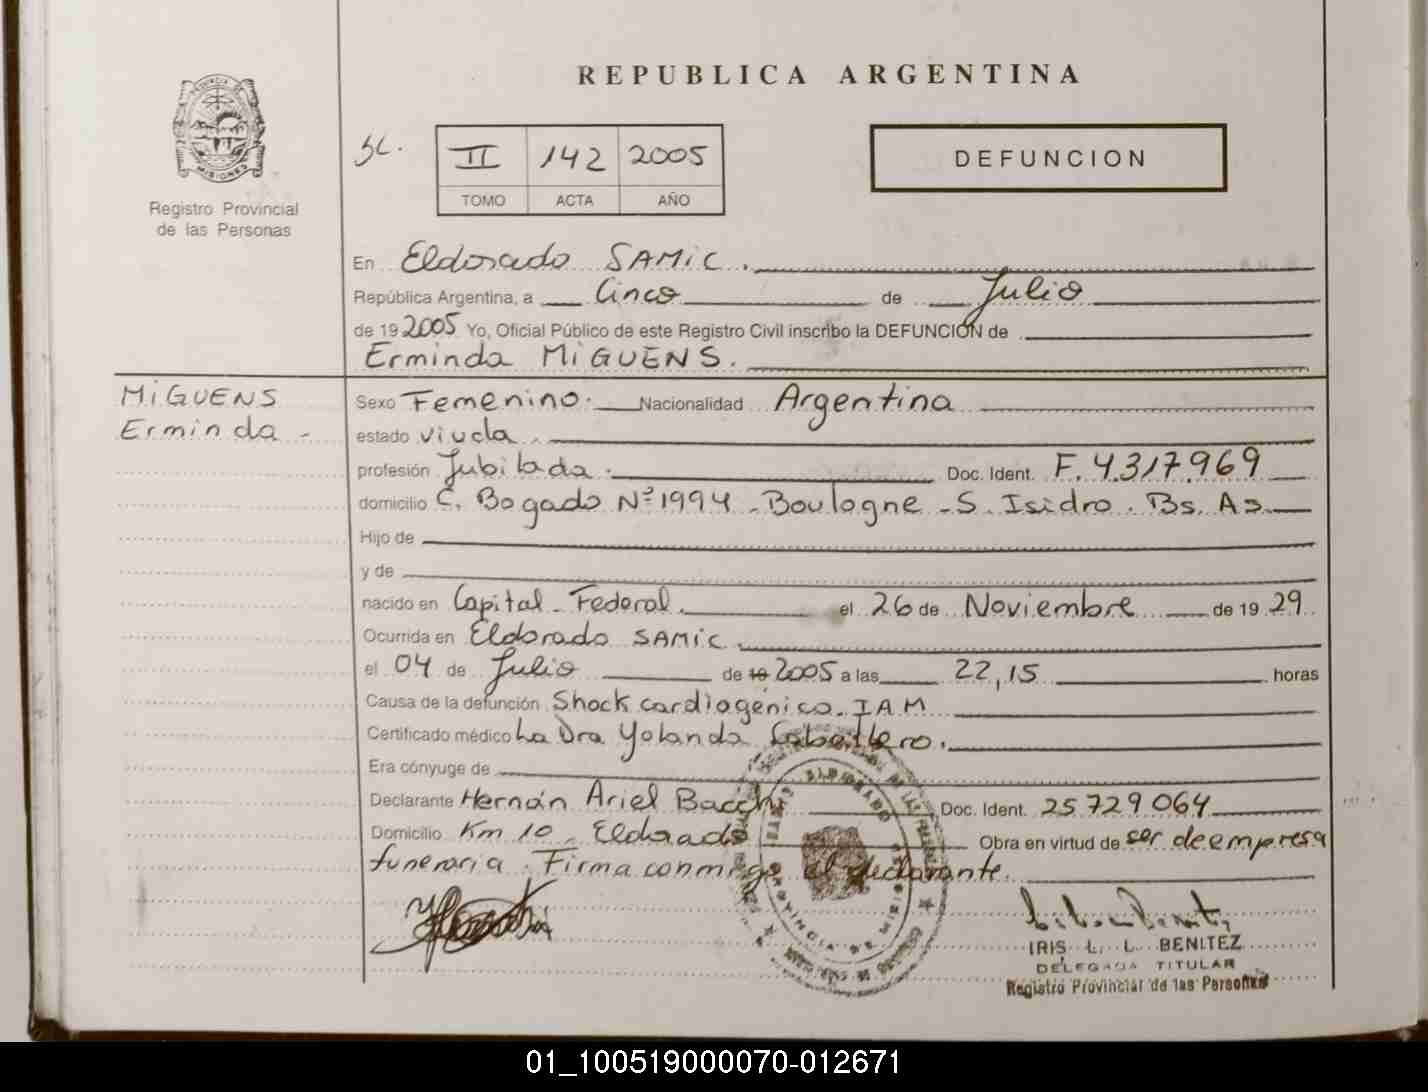 REPUBLICA ARGENTINA
MISIONES
Registro Provincial
de las Personas
II 142 2005
TOMO ACTA AÑO
DEFUNCION
En Eldorado SAMiC.
República Argentina, a Cinco de Julio
de 19 2005 Yo, Oficial Público de este Registro Civil inscribo la DEFUNCIÓN de
Erminda MiGUENS.
MiGUENS
Erminda -
Sexo Femenino. Nacionalidad Argentina
estado viuda.
profesión Jubilada. Doc. Ident. F. 4.317.969
domicilio C. Bogado Nº 1994 - Boulogne - S. Isidro. Bs. As.
Hijo de
y de
nacido en Capital Federal. el 26 de Noviembre de 19 29
Ocurrida en Eldorado SAMIC.
el 04 de Julio de 19 2005 a las 22,15 horas
Causa de la defunción Shock cardiogenico. IAM
Certificado médico La Dra Yolanda Caballero.
Era cónyuge de
Declarante Hernán Ariel Bacchi Doc. Ident. 25 729 064
Domicilio Km 10. Eldorado Obra en virtud de ser de empresa
funeraria. Firma conmigo el declarante.
ELDORADO
PROVINCIA DE MISIONES
IRIS L. L. BENITEZ
DELEGADA TITULAR
Registro Provincial de las Personas
01_100519000070-012671